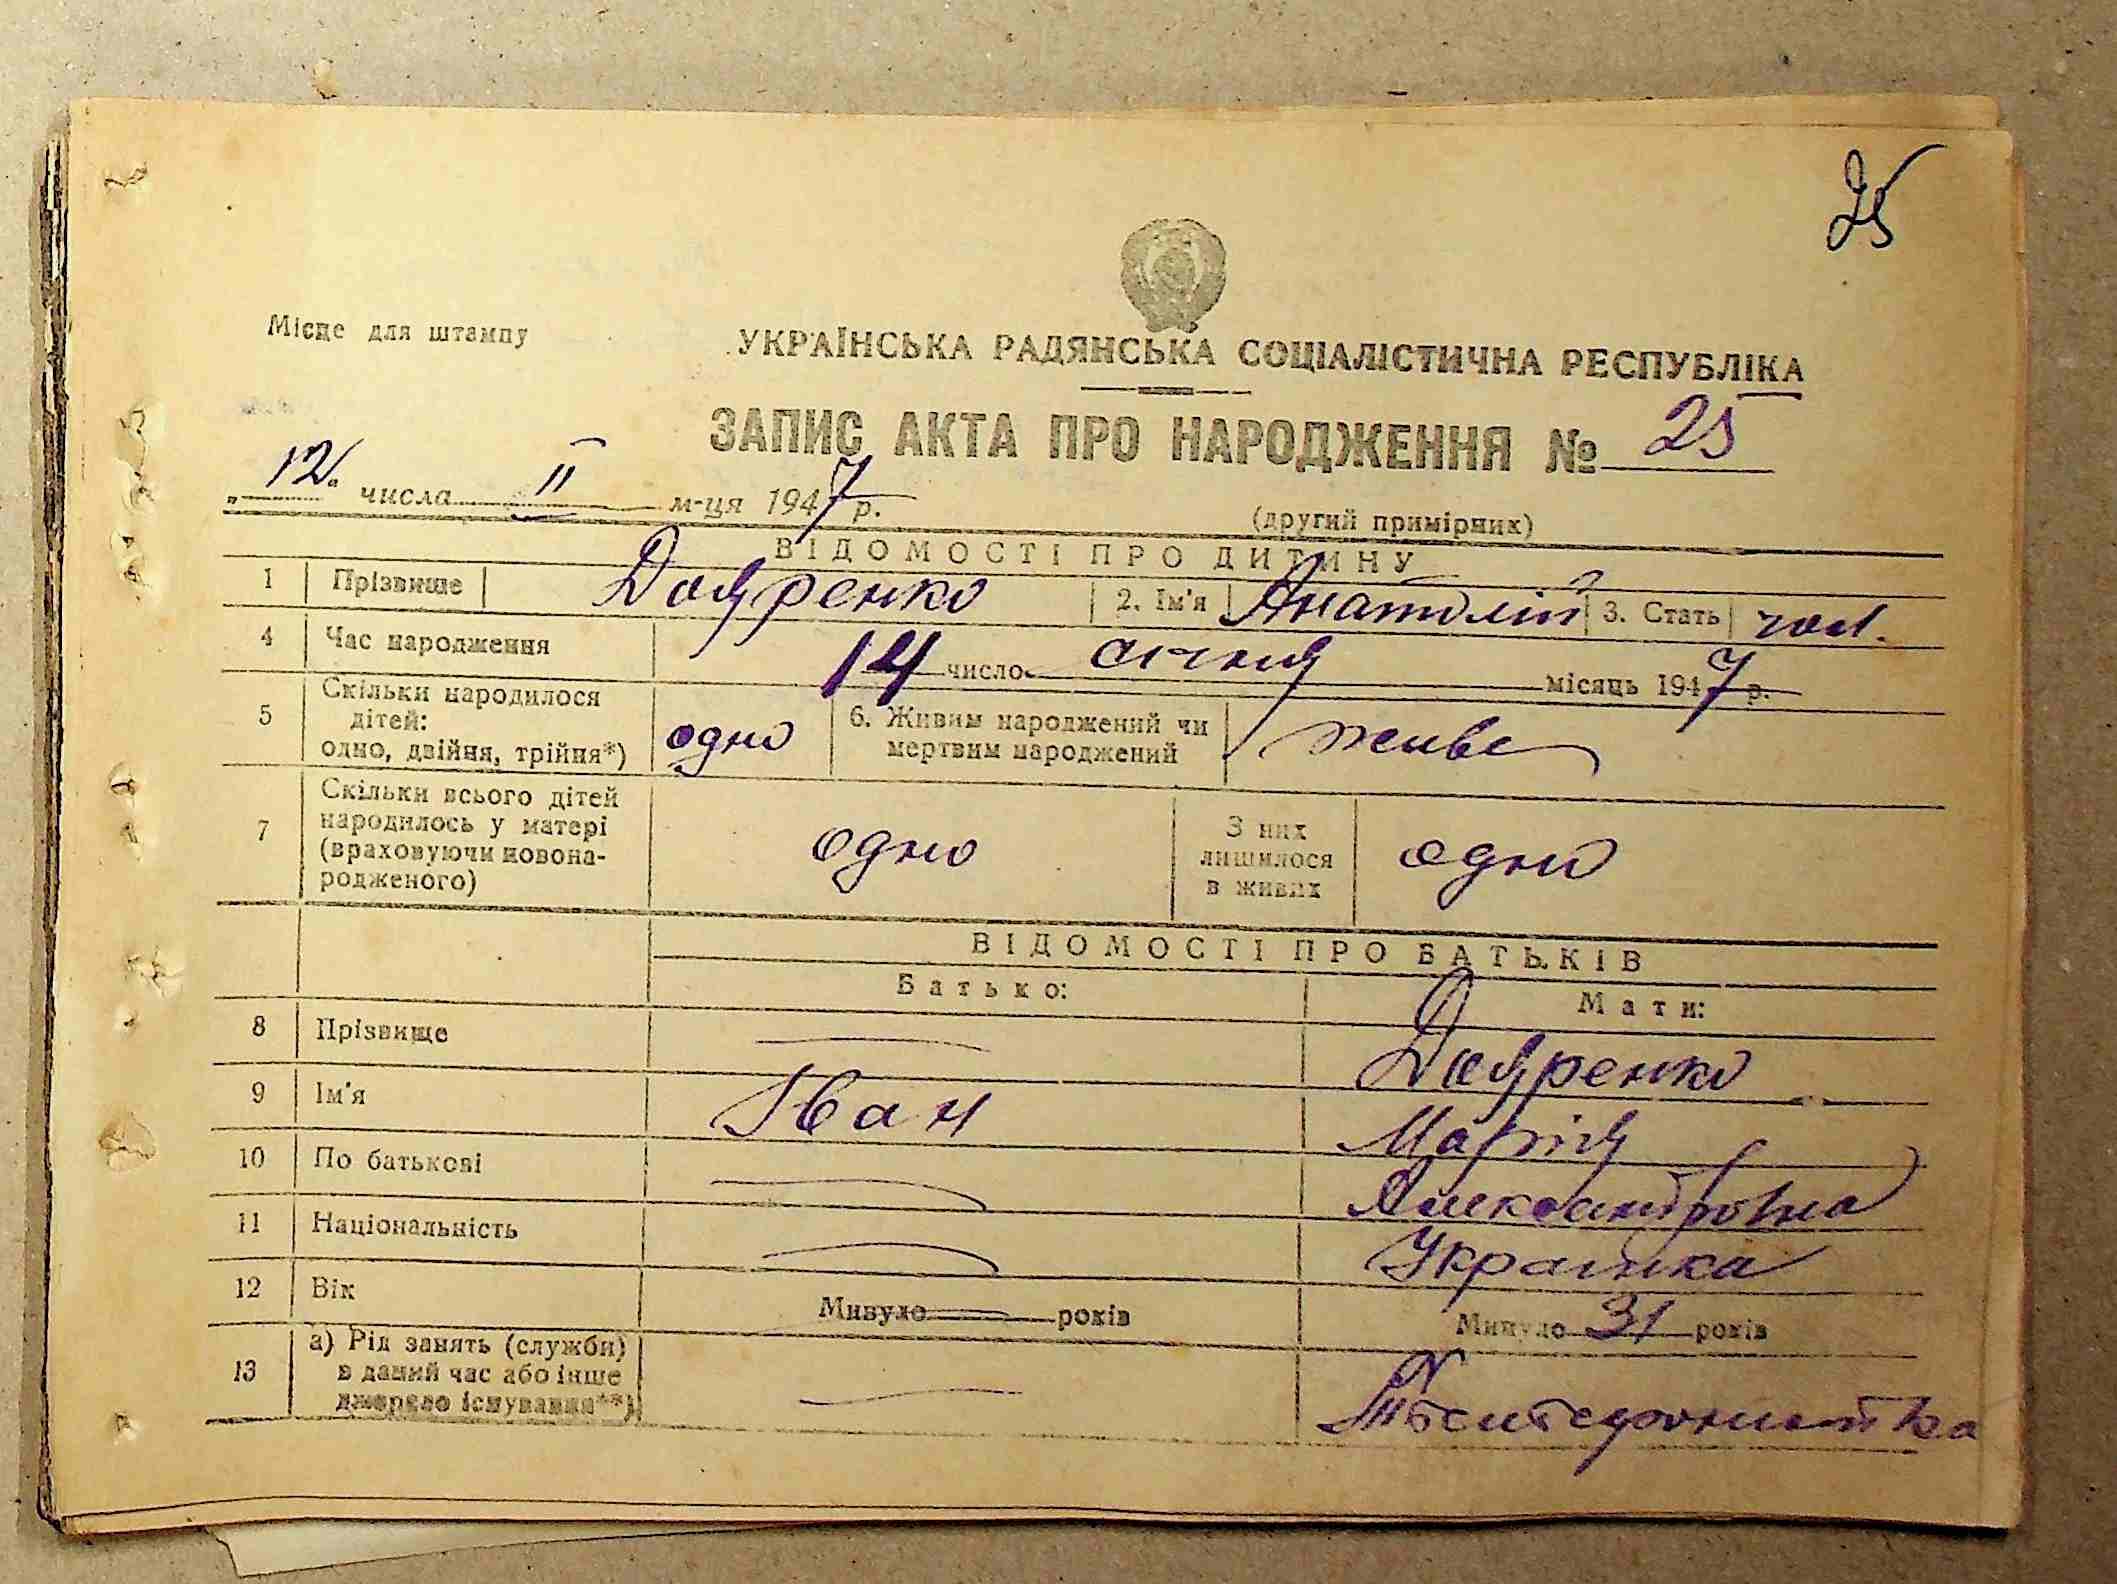 25
Місце для штампу
УКРАЇНСЬКА РАДЯНСЬКА СОЦІАЛІСТИЧНА РЕСПУБЛІКА
ЗАПИС АКТА ПРО НАРОДЖЕННЯ № 25
„12“ числа II м-ця 1947 р.
(другий примірник)
ВІДОМОСТІ ПРО ДИТИНУ
1 Прізвище Дояренко 2. Ім'я Анатолій 3. Стать чол.
4 Час народження 14 число січня місяць 1947 р.
5 Скільки народилося
дітей:
одно, двійня, трійня*) одно
6. Живим народжений чи
мертвим народжений живе
7 Скільки всього дітей
народилось у матері
(враховуючи новона-
родженого) одно
З них
лишилося
в живих одно
ВІДОМОСТІ ПРО БАТЬКІВ
Батько: Мати:
8 Прізвище — Дояренко
9 Ім'я Іван Марія
10 По батькові — Александровна
11 Національність — Українка
12 Вік Минуло — років Минуло 31 років
13 а) Рід занять (служби)
в даний час або інше
джерело існування**) —